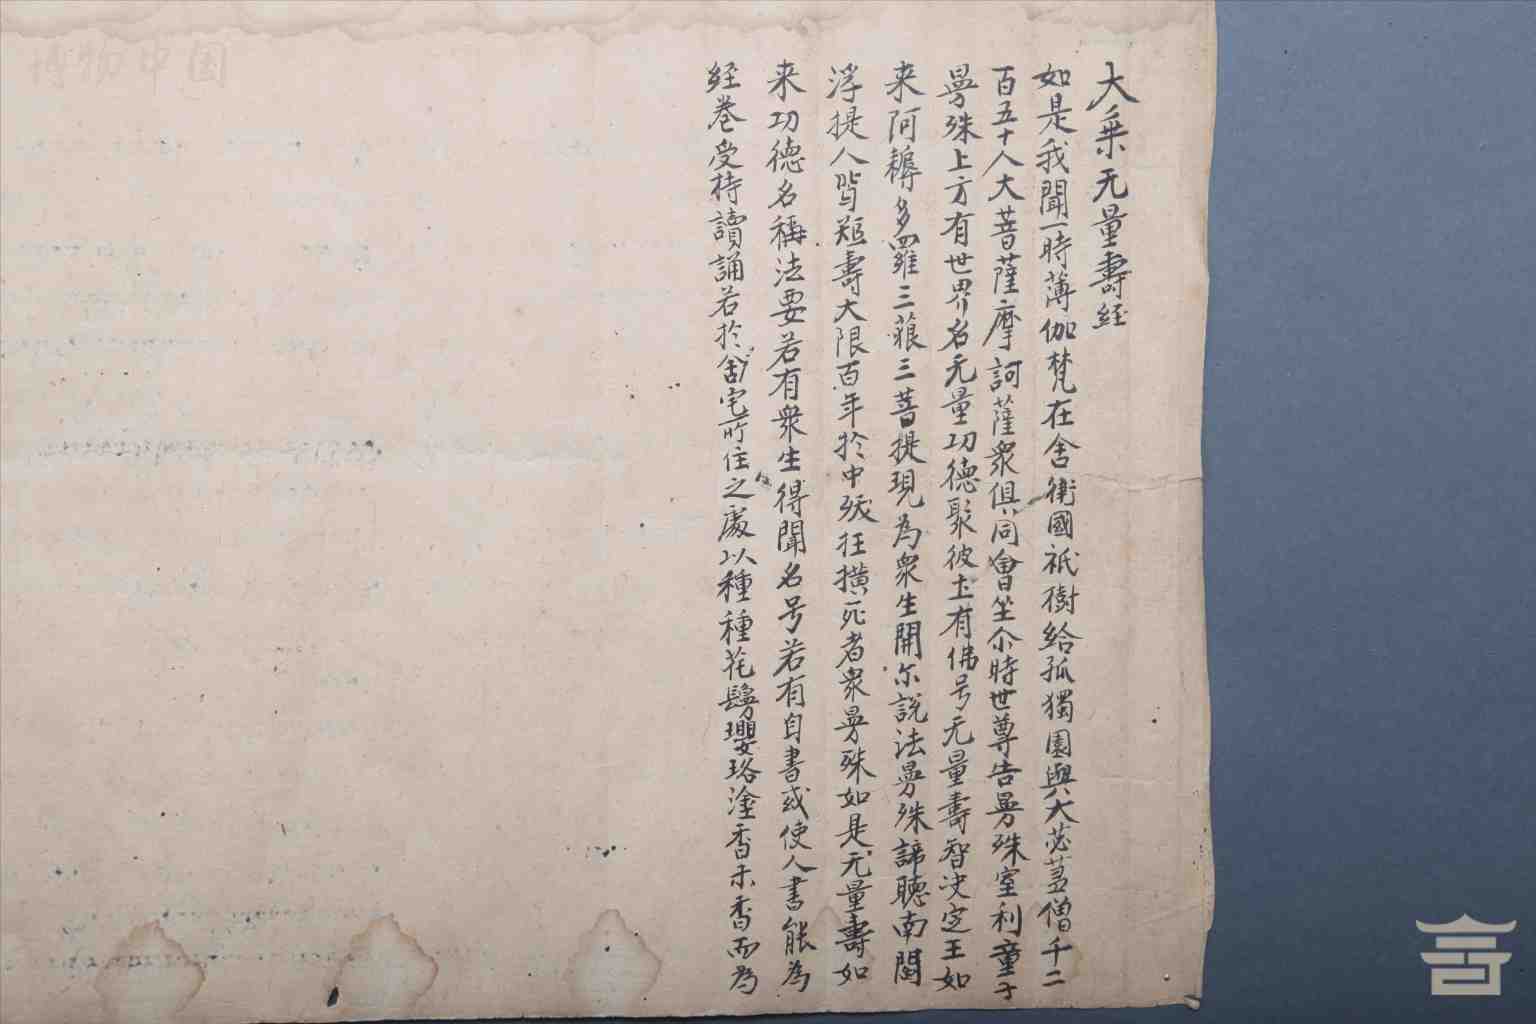 大乗无量壽経
如是我聞一時薄伽梵在舍衛國祇樹給孤獨園與大苾蒭僧千二
百五十人大菩薩摩訶薩衆俱同會坐尒時世尊告曼殊室利童子
曼殊上方有世界名无量功德聚彼土有佛号无量壽智決定王如
来阿耨多羅三藐三菩提現為衆生開示說法曼殊諦聽南閻
浮提人皆短壽大限百年於中殀狂撗死者衆曼殊如是无量壽如
来功德名稱法要若有衆生得聞名号若有自書或使人書能為
経卷受持讀誦若於舍宅所住之處以種種花鬘瓔珞塗香末香而為
博物中国